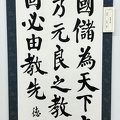 國儲為天下
乃元良之教
因必由教先